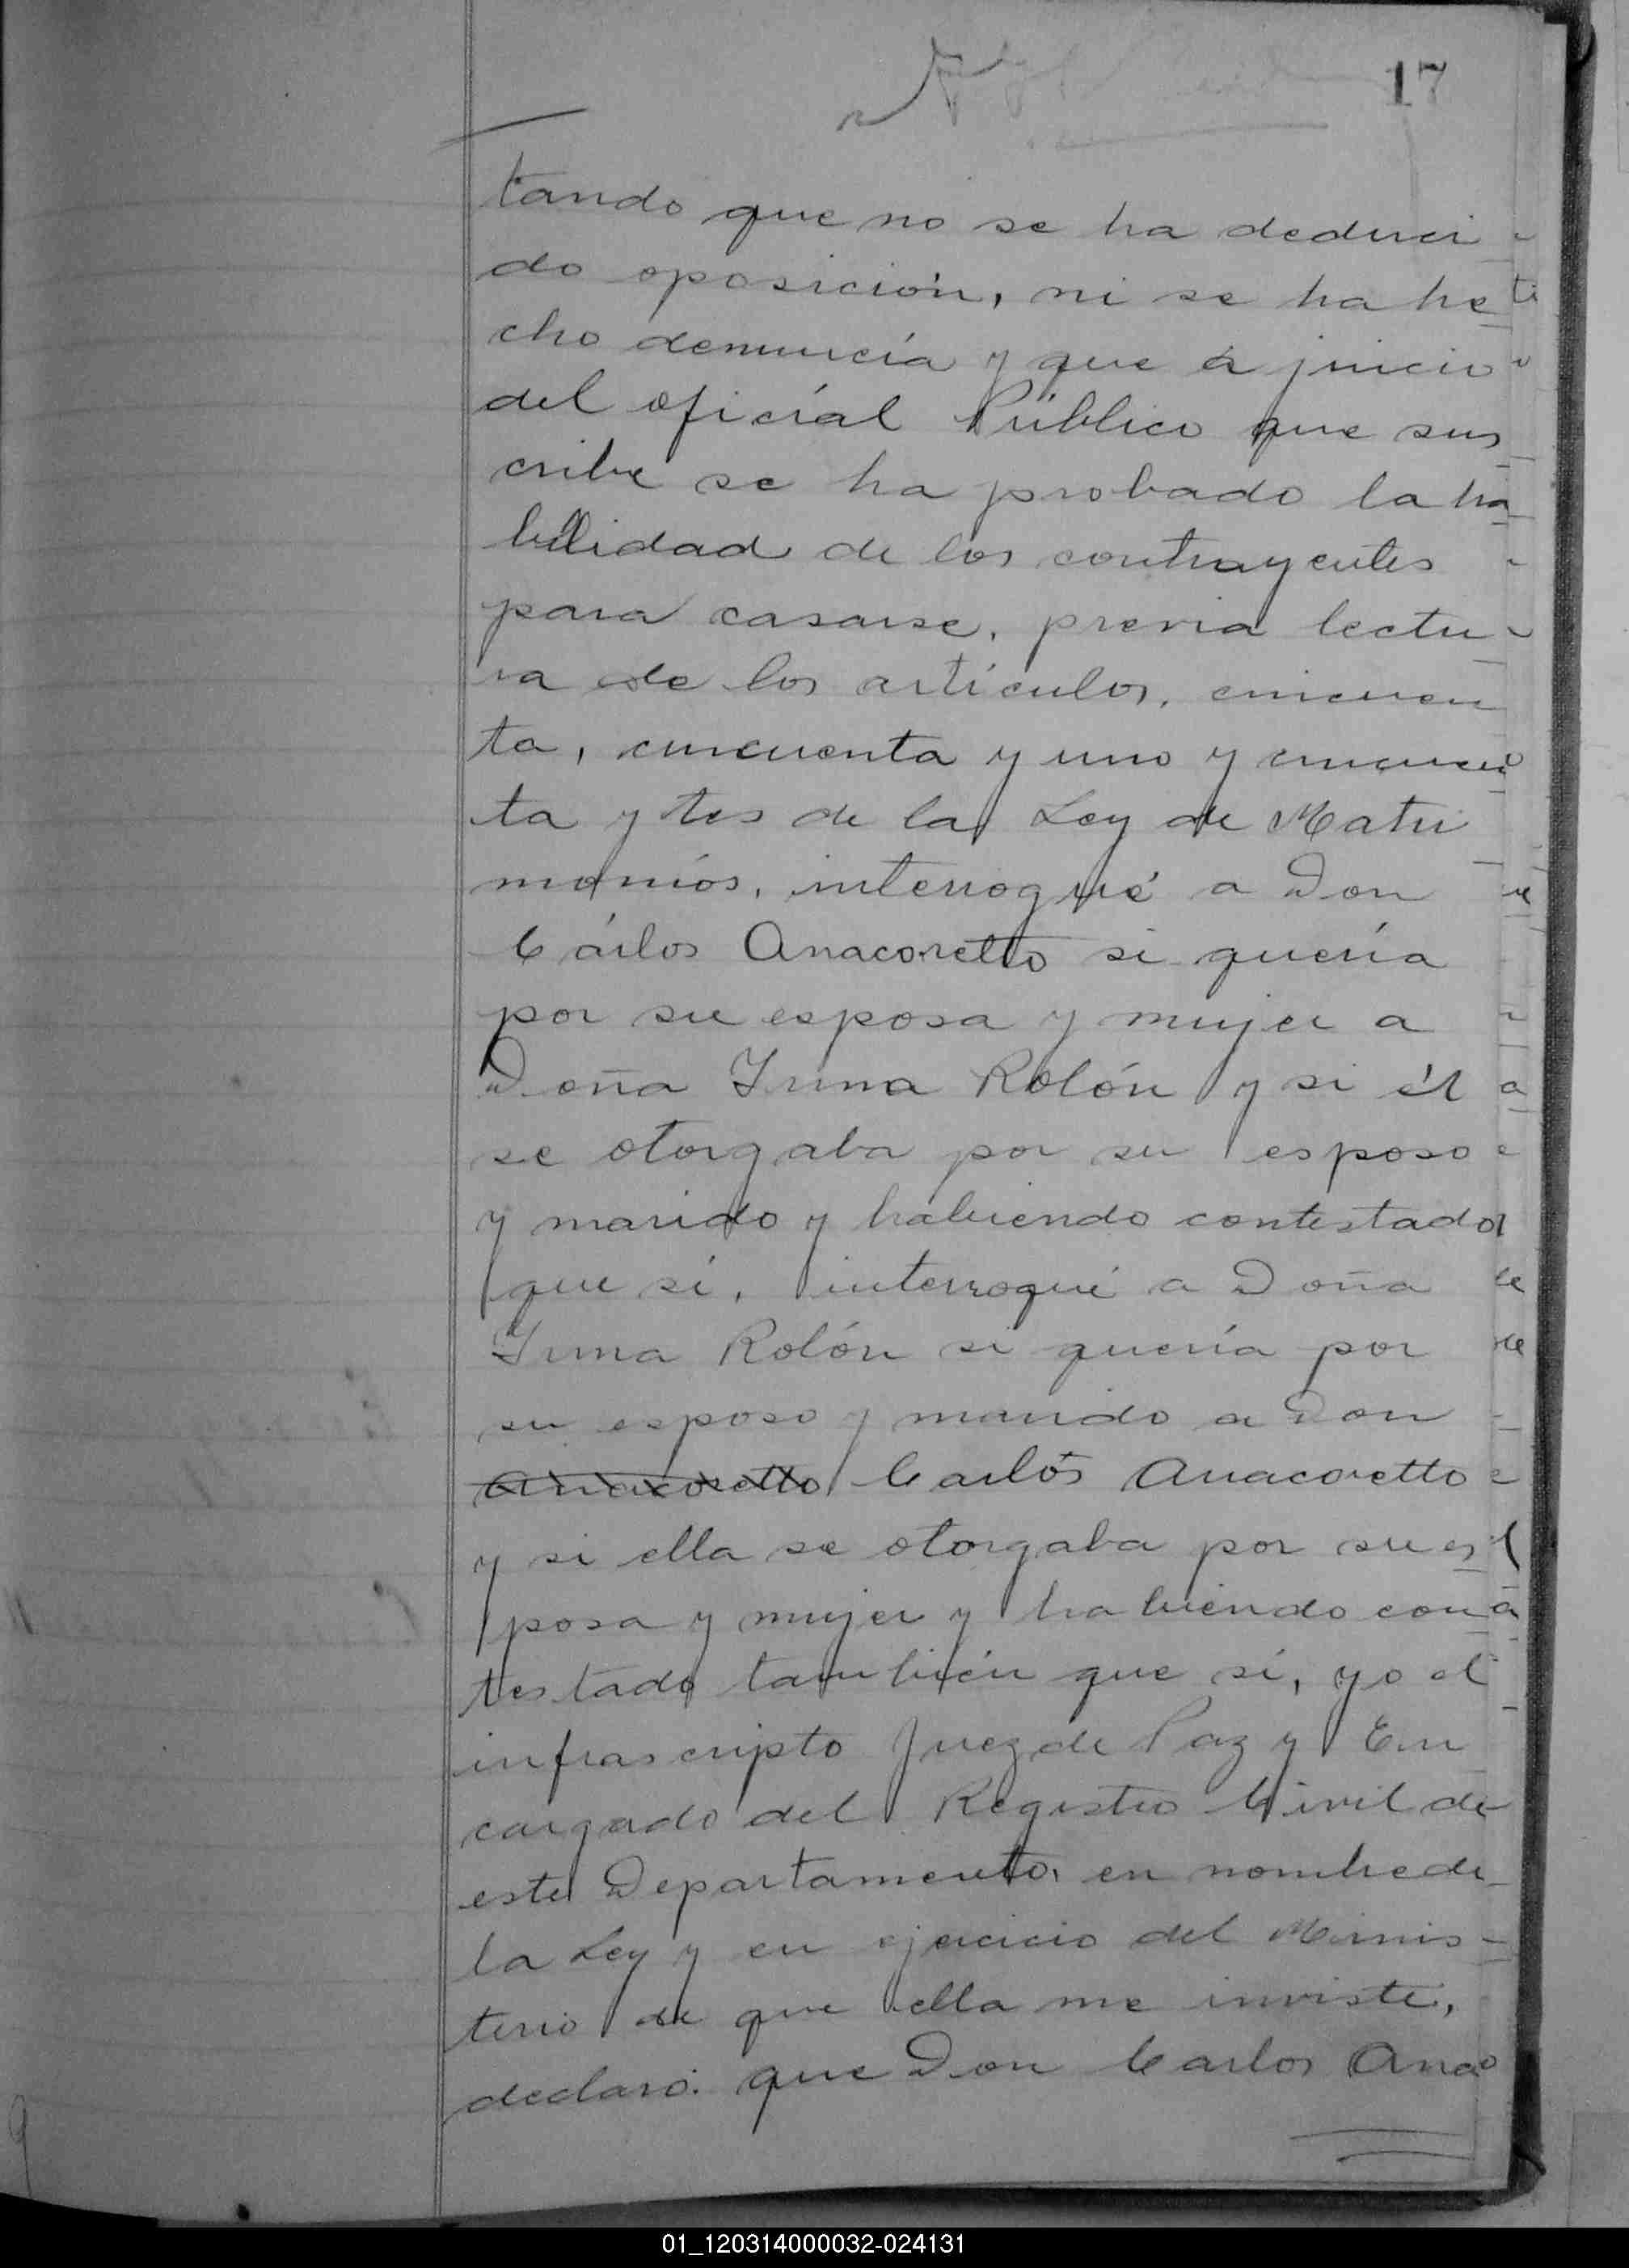 17
tando que no se ha deduci
do oposición, ni se ha he
cho denuncia y que á juicio
del oficial Público que sus
cribe se ha probado la ha
bilidad de los contrayentes
para casarse, previa lectu
ra de los artículos, cincuen
ta, cincuenta y uno y cincuen
ta y tes de la Ley de Matri
monios, interrogué a Don
Cárlos Anacoretto si quería
por su esposa y mujer a
Doña Irma Rolón y si él
se otorgaba por su esposo
y marido y habiendo contestado
que sí, interrogué a Doña
Irma Rolón si quería por
su esposo y marido a Don
Anacoretto Carlos Anacoretto
y si ella se otorgaba por su es
posa y mujer y habiendo con
testado también que sí, yo el
infrascripto Juez de Paz y En
cargado del Registro Civil de
este Departamento, en nombre de
la Ley y en ejercicio del Minis-
terio de que ella me inviste,
declaro: que Don Carlos Anaco
01_120314000032-024131